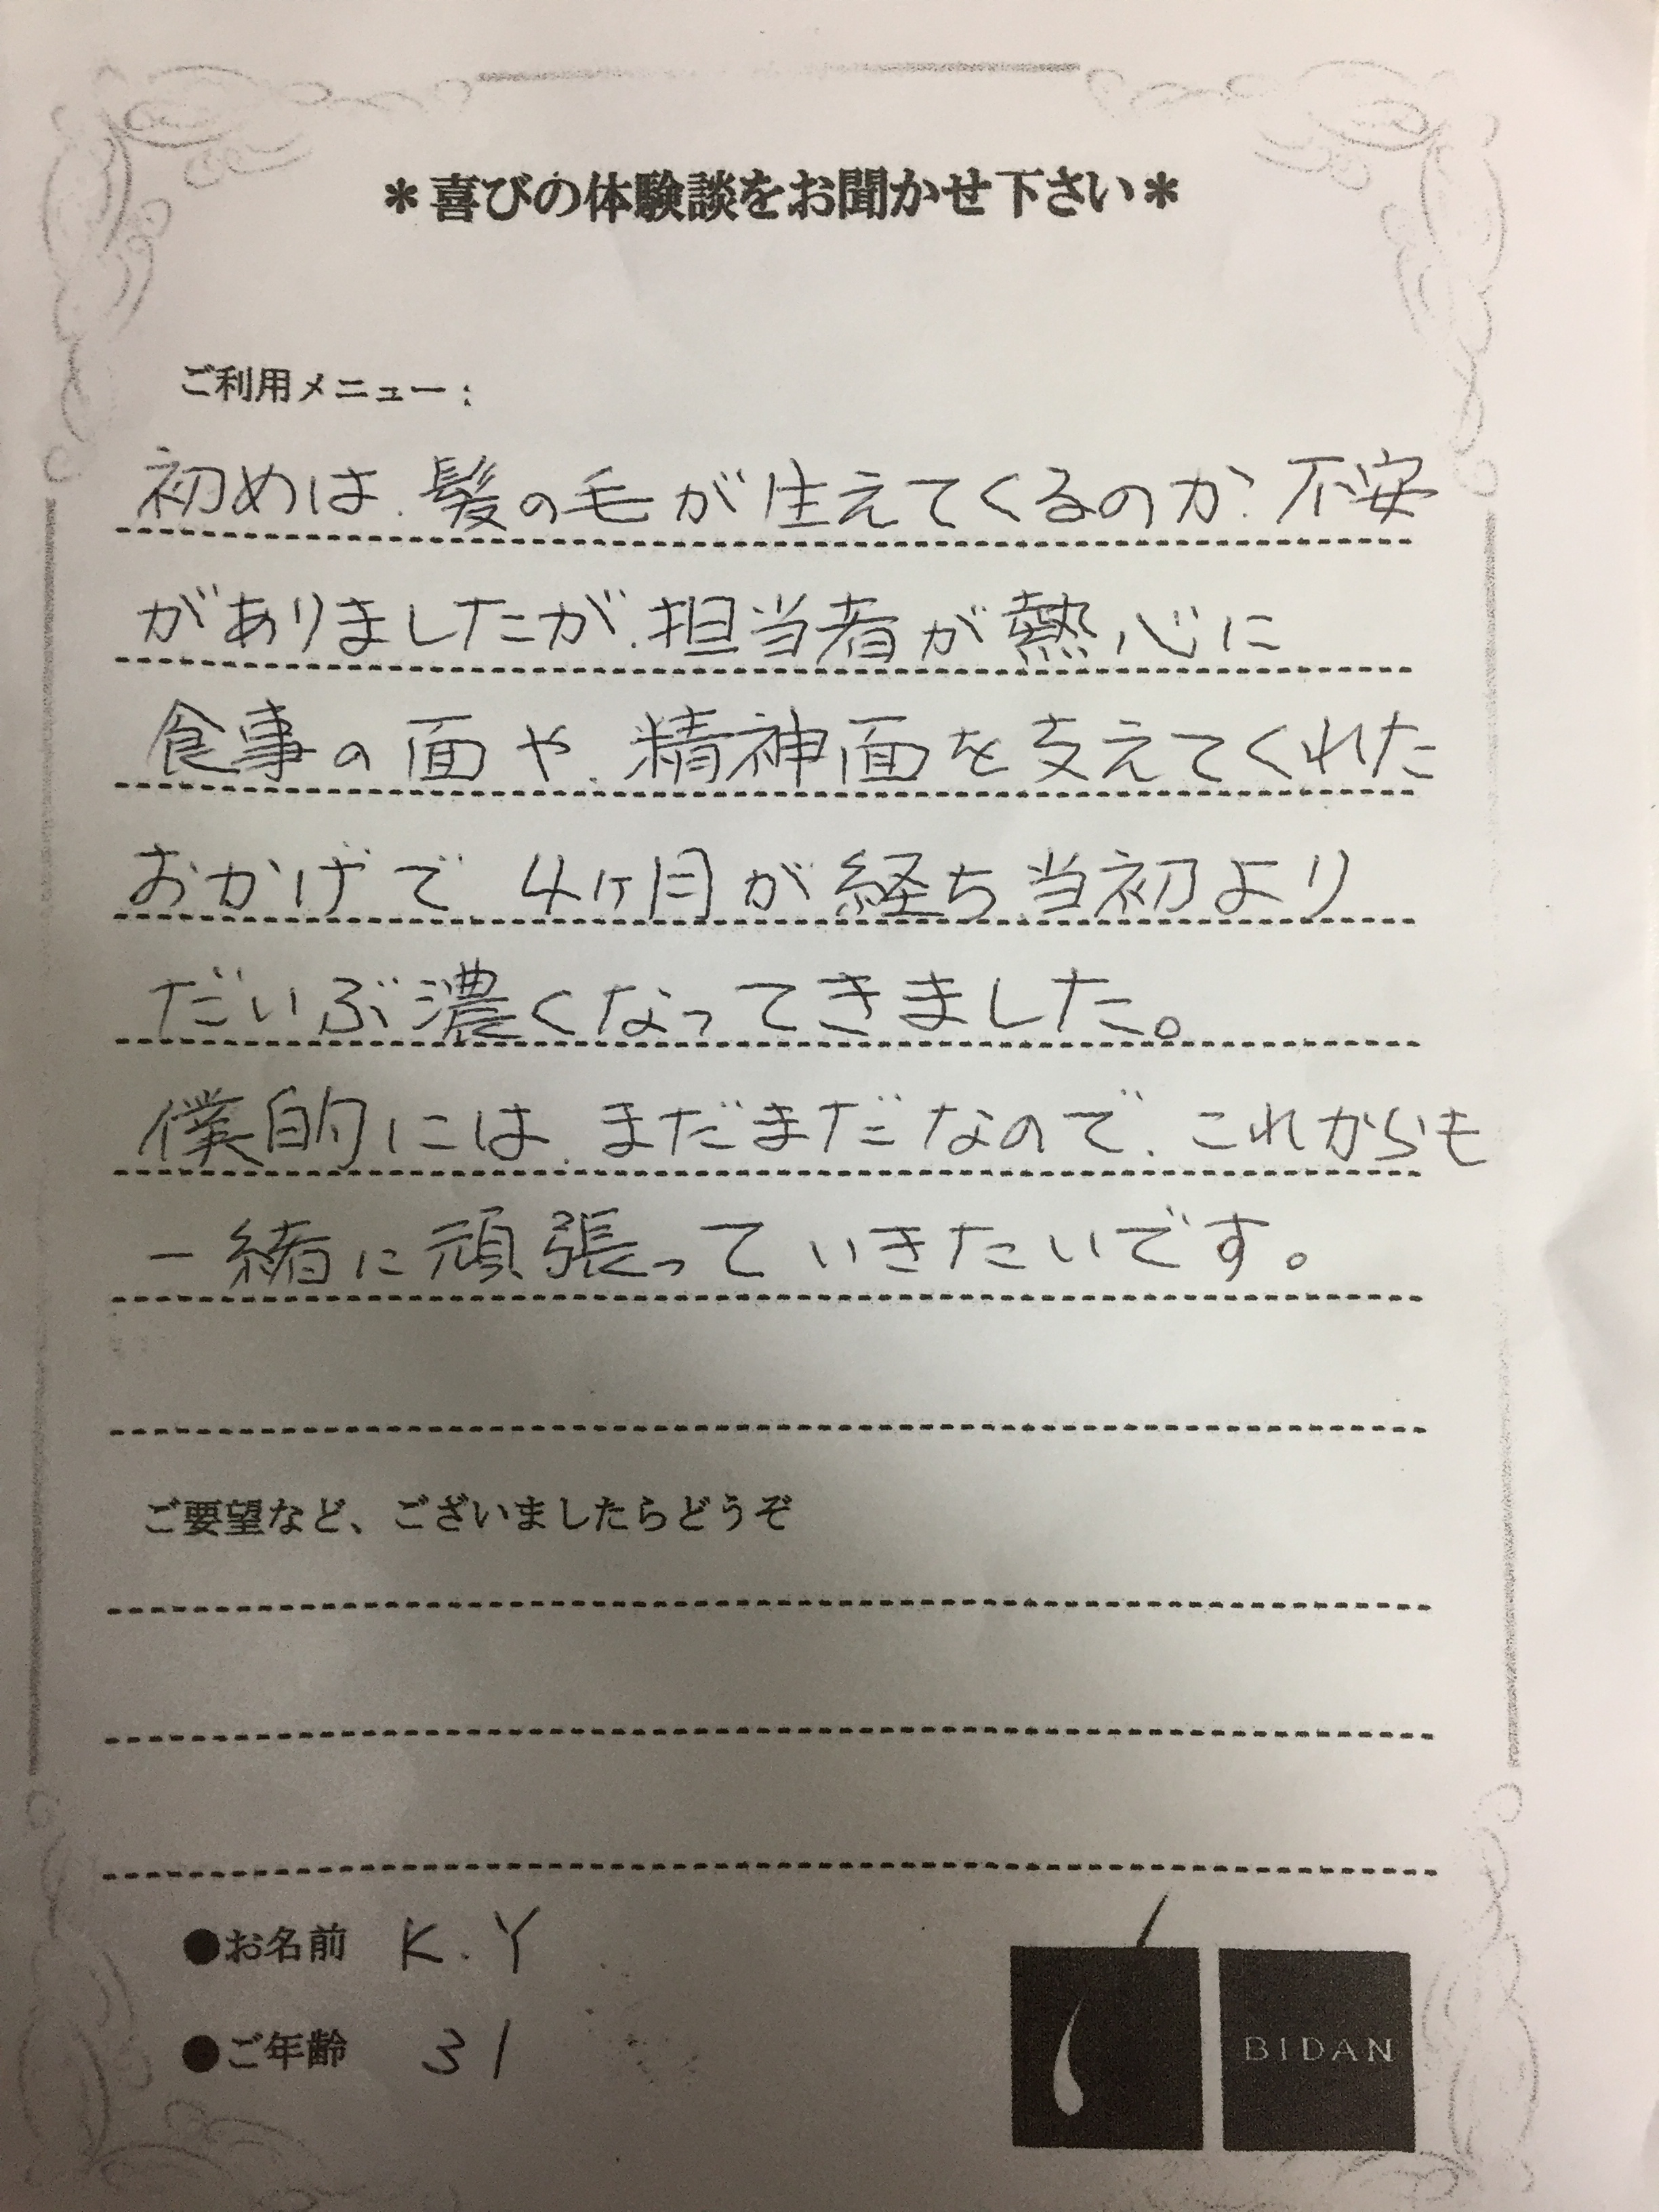 ＊喜びの体験談をお聞かせ下さい＊
ご利用メニュー：
初めは、髪の毛が生えてくるのか、不安
がありましたが、担当者が熱心に
食事の面や、精神面を支えてくれた
おかげで、4ヶ月が経ち、当初より
だいぶ濃くなってきました。
僕的には、まだまだなので、これからも
一緒に頑張っていきたいです。
ご要望など、ございましたらどうぞ
●お名前 K.Y
●ご年齢 31
BIDAN